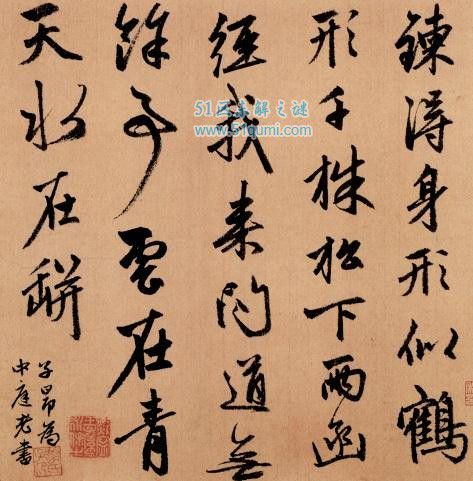 鍊得身形似鶴
形千株松下兩函
經我来問道無
餘事雲在青
天水在缾
子昂為
中庭老書
51区未解之谜
www.51qumi.com